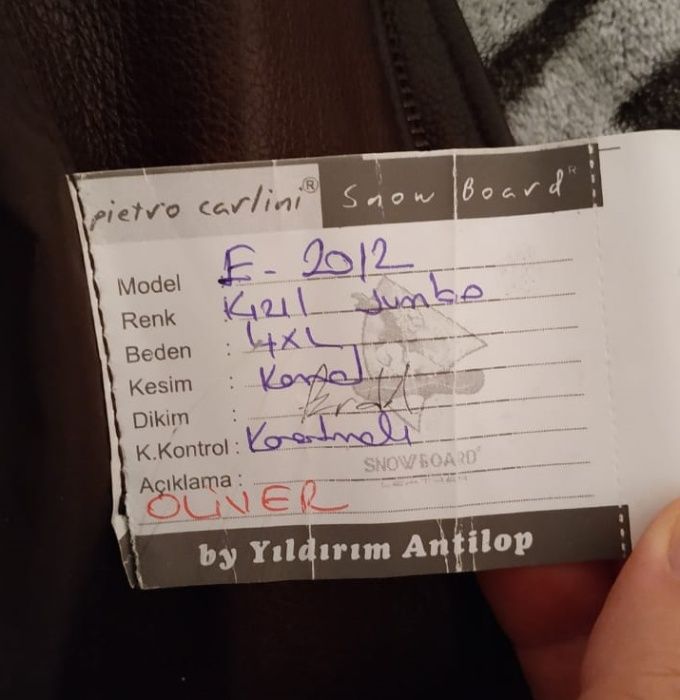 pietro carlini® Snow Board®
Model E-2012
Renk Kızıl Jumbo
Beden : 4XL
Kesim : Kemal
Dikim :
K.Kontrol :
Açıklama :
OLIVER
SNOWBOARD
by Yıldırım Antilop